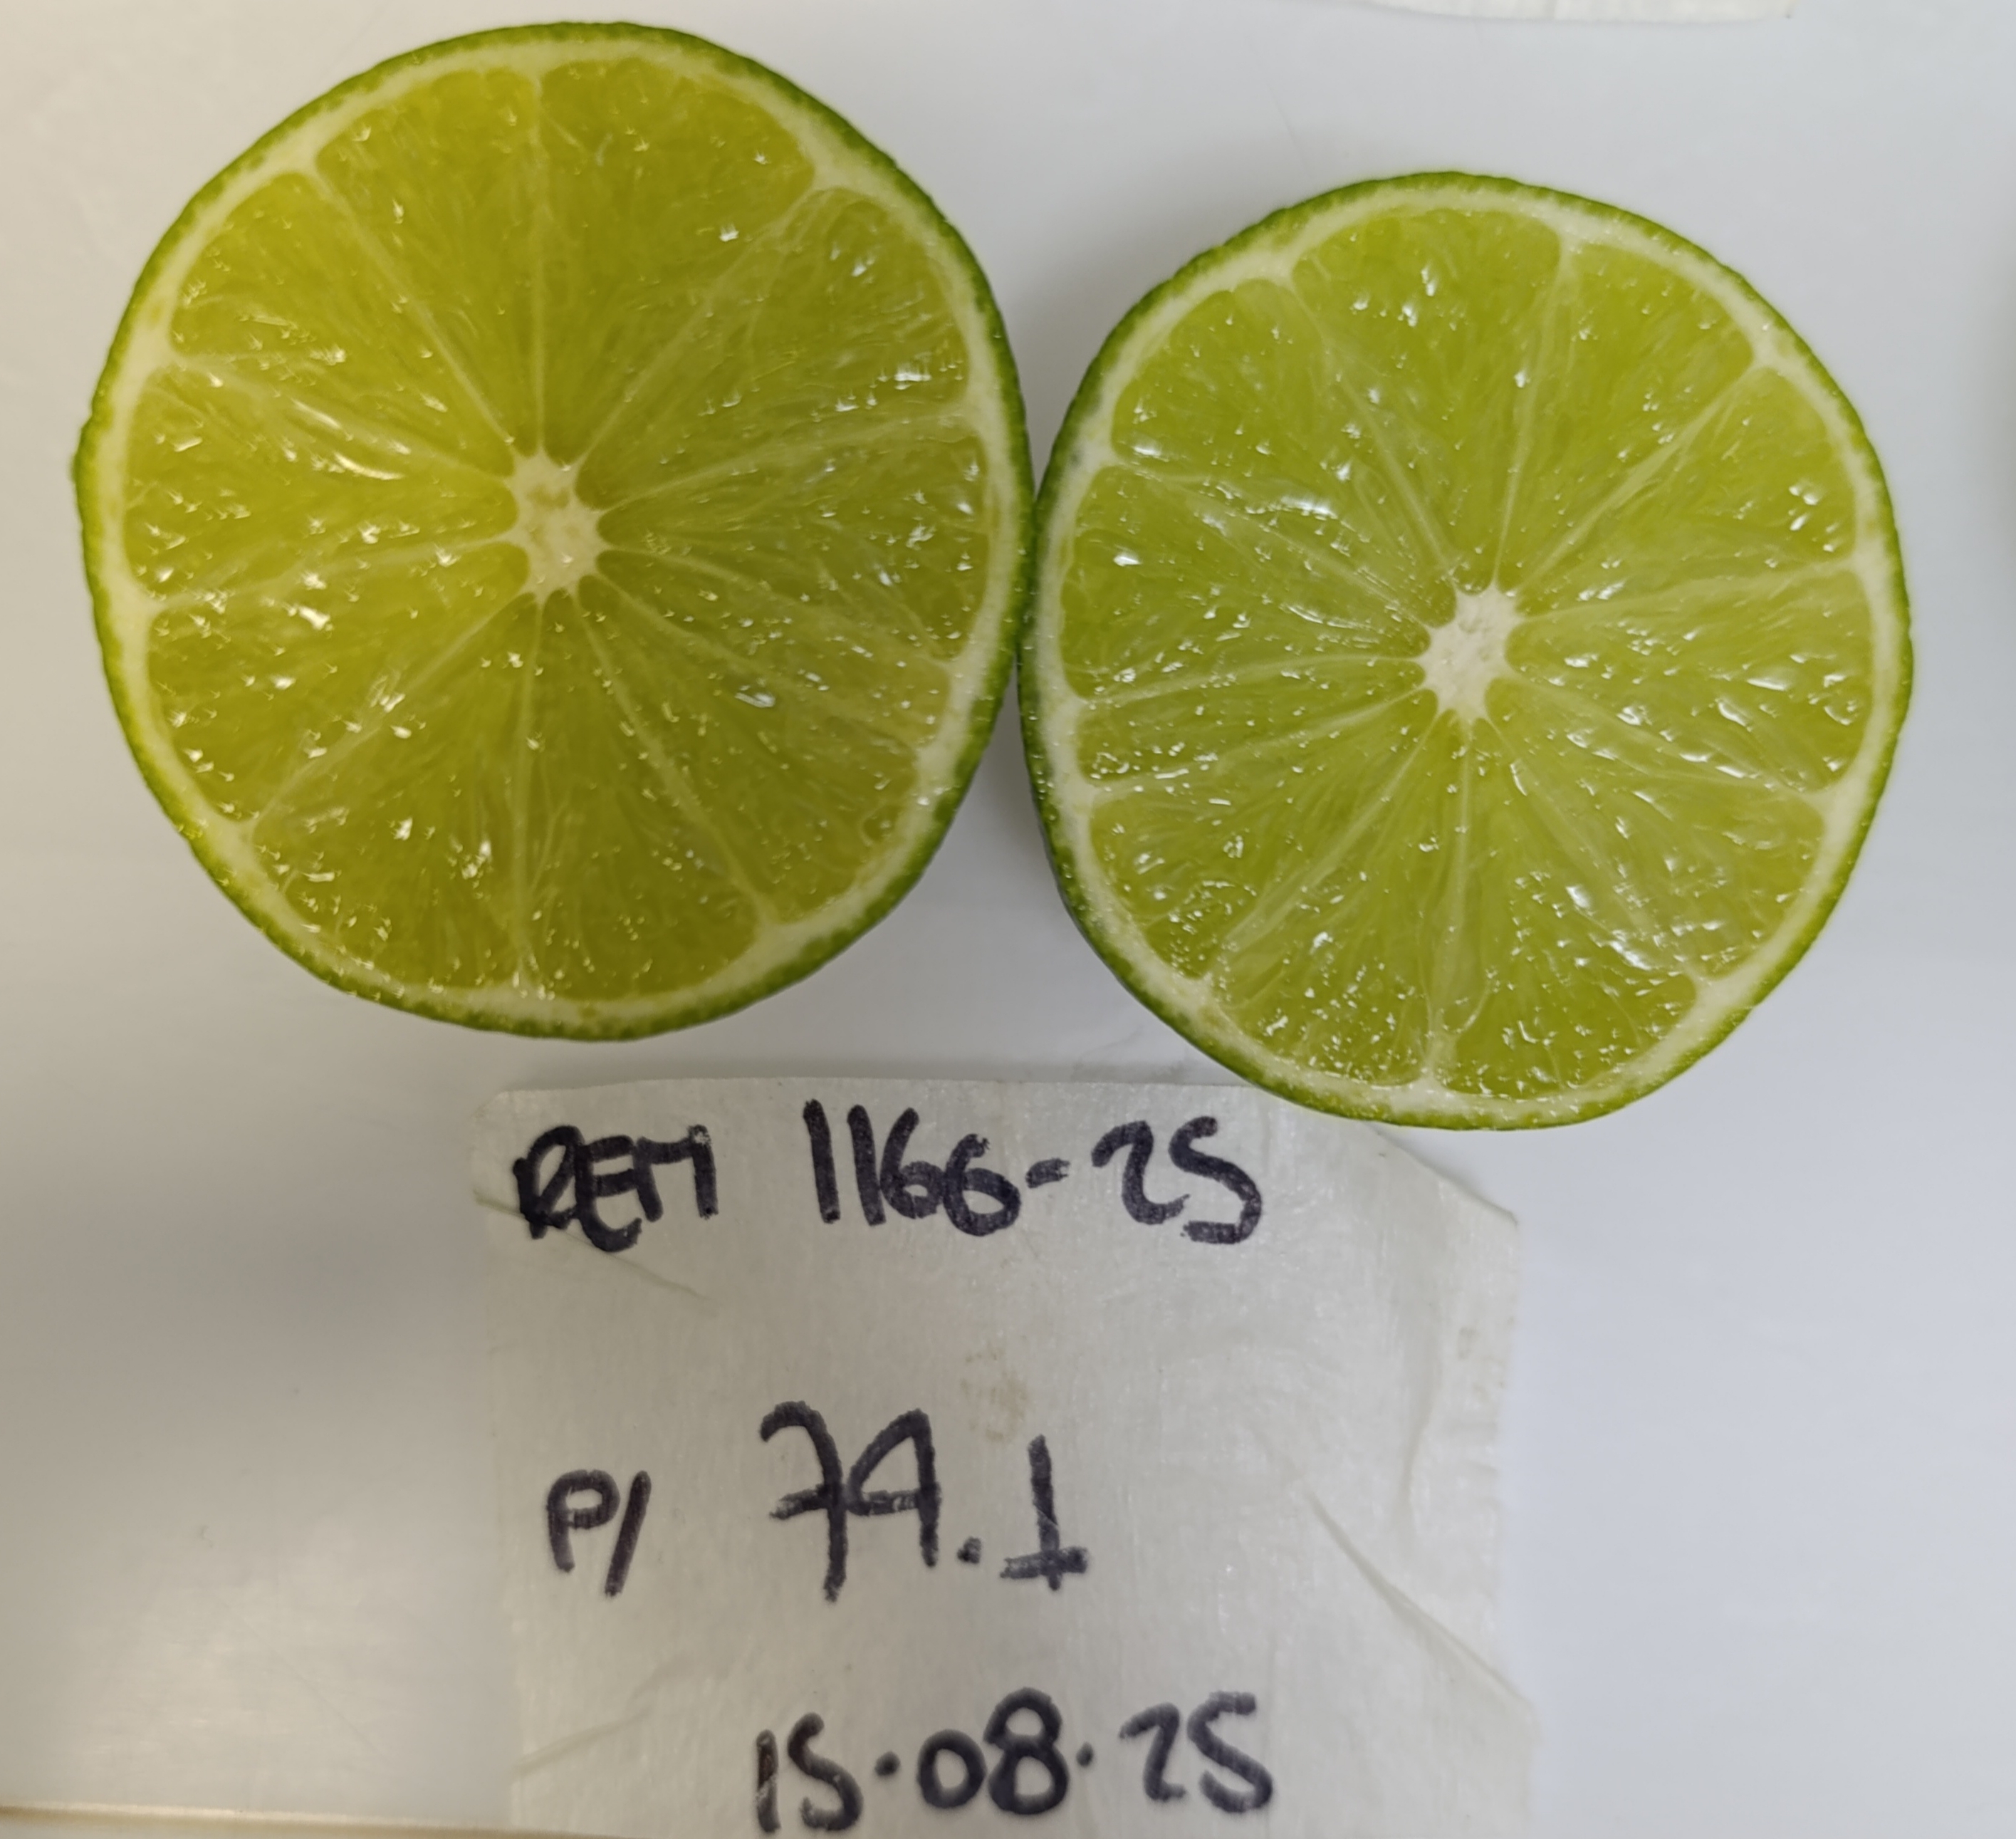 REM 1166-25
P/ 74.1
15.08.25